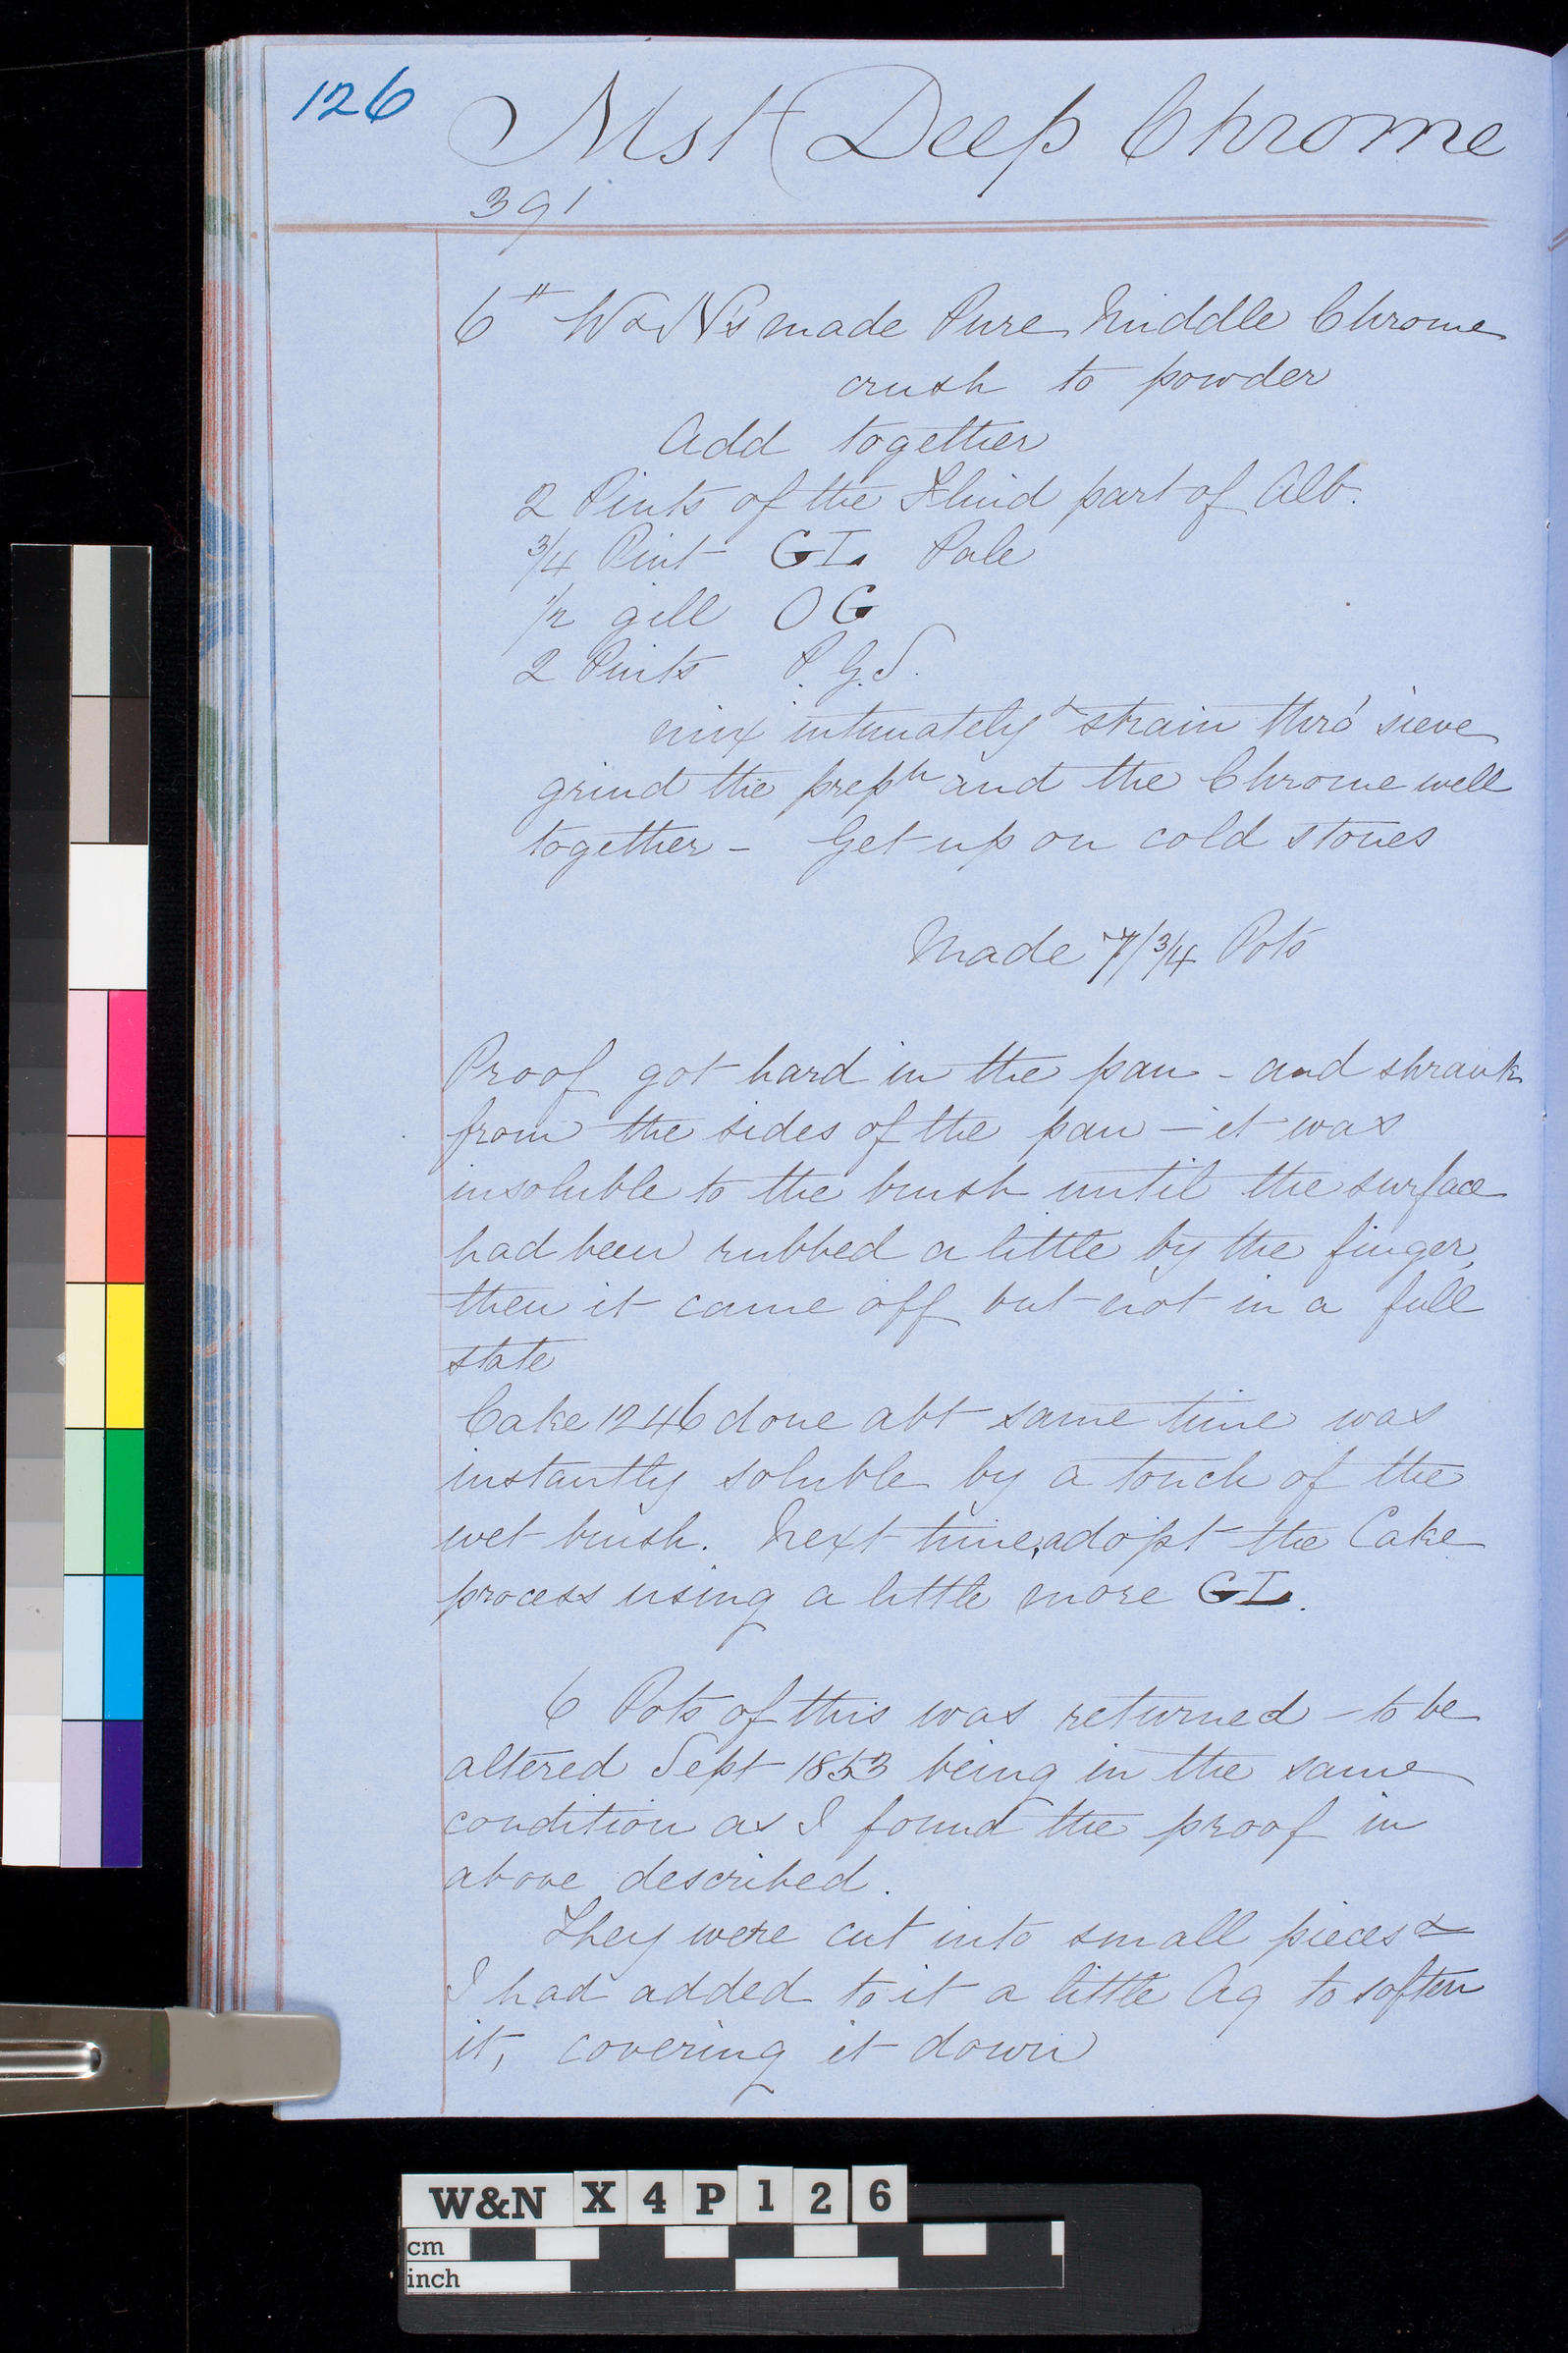 126
Mst Deep Chrome
391
6 # W & N's made Pure Middle Chrome
crush to powder
Add together
2 Pints of the Fluid part of Alb.
3/4 Pint GL Pale
1/2 gill OG
2 Pints P.G.S.
mix intimately & strain thro' sieve
grind the prepn and the Chrome well
together - Get up on cold stones
Made 7/3/4 Pots
Proof got hard in the pan - and shrank
from the sides of the pan - it was
insoluble to the brush until the surface
had been rubbed a little by the finger,
then it came off but not in a full
state
Cake 1246 done abt same time was
instantly soluble by a touch of the
wet brush. Next time, adopt the Cake
process using a little more GL.
6 Pots of this was returned - to be
altered Sept 1853 being in the same
condition as I found the proof in
above described.
They were cut into small pieces &
I had added to it a little Aq to soften
it, covering it down
W&N X 4 P 1 2 6
cm
inch